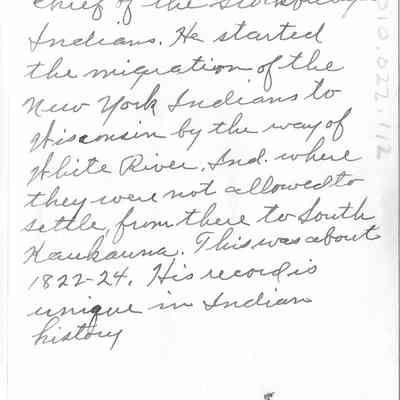 chief of the Stockbridge
Indians. He started
the migration of the
New York Indians to
Wisconsin by the way of
White River, Ind. where
they were not allowed to
settle, from there to South
Kaukauna. This was about
1822-24. His record is
unique in Indian
history